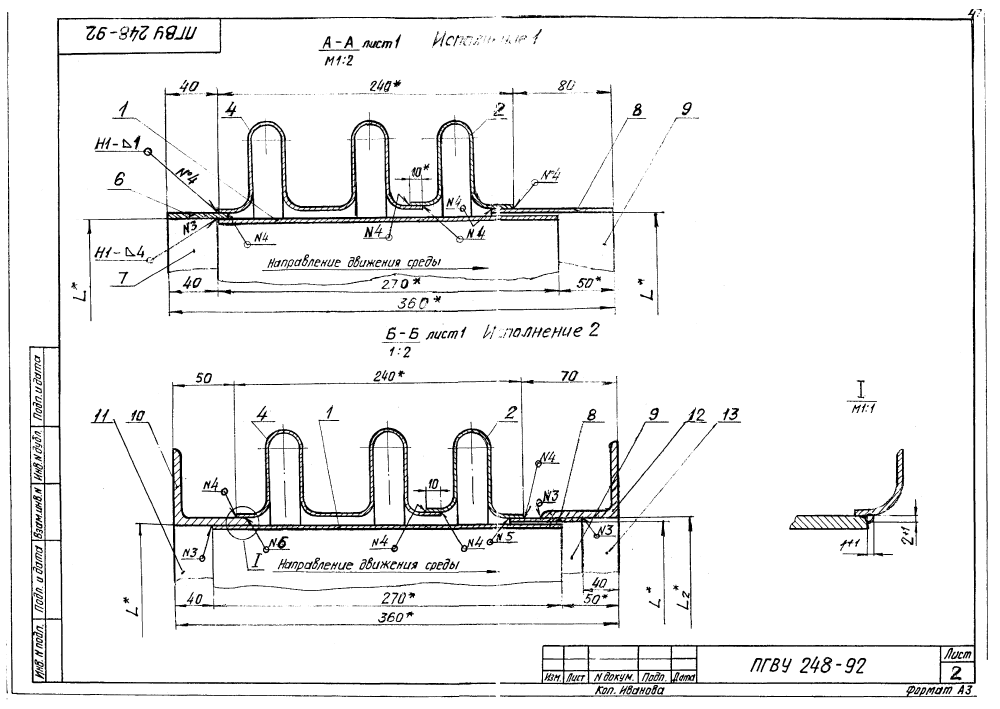 47
ПГВУ 248-92
А-А лист 1 Исполнение 1
М1:2
40 240* 80
1 4 2 8 9
Н1-⊿1
10*
№4 №4
6
N3 N4 N4 N4 N4
Н1-⊿4
7
Направление движения среды
L* 40 270* 50* L*
360*
Б-Б лист 1 Исполнение 2
1:2
50 240* 70
I
М1:1
11 10 4 1 2 8 9 12 13
N4 10 N4 N3
N3 N6 N4 N4 N5 N3
I
Направление движения среды
1±1 2±1
40
L* 40 270* 50* L* L₂*
360*
Инв. N подл. Подп. и дата Взам. инв. N Инв. N дубл. Подп. и дата
Изм. Лист N докум. Подп. Дата
ПГВУ 248-92
Лист
2
Коп. Иванова Формат А3